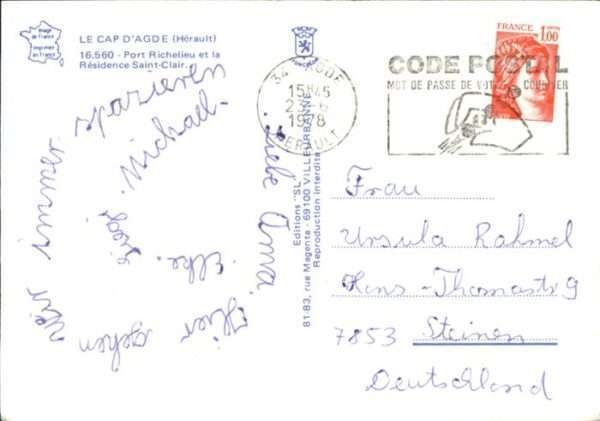 Image de France
Imprimée en France
LE CAP D'AGDE (Hérault)
16.560 - Port Richelieu et la
Résidence Saint-Clair.
Editions "SL"
81-83, rue Magenta - 69100 VILLEURBANNE
Reproduction interdite
34 AGDE
15H45
1978
HERAULT
CODE POSTAL
MOT DE PASSE DE VOTRE COURRIER
FRANCE 1,00
Liebe Oma.
Hier gehen
wir immer
spazieren
Elke.
Michael-
Frau
Ursula Rahmel
Hans-Thomastr 9
7853 Steinen
Deutschland